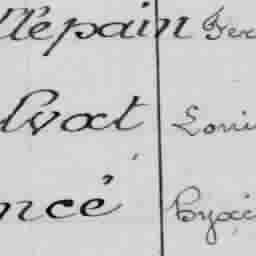 lépain Fer
lvat Loui
ncé Hya